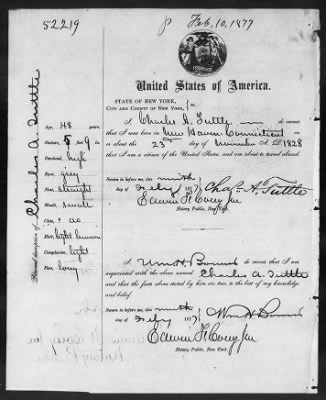 52219
Feb. 10. 1877
United States of America.
STATE OF NEW YORK,
CITY AND COUNTY OF NEW YORK,
I, Charles A. Tuttle do swear
that I was born in New Haven Connecticut on
or about the 23 day of November A. D. 1828
that I am a citizen of the United States, and am about to travel abroad.
Sworn to before me, this ninth
day of Feby 187
Chas. A. Tuttle
Notary Public, New York.
I, Wm H. do swear that I am
acquainted with the above named Charles A. Tuttle
and that the facts above stated by him are true, to the best of my knowledge
and belief.
Sworn to before me, this ninth
day of Feby 187
Wm H.
Notary Public, New York.
Personal description of Charles A. Tuttle
Age, 48 years
Stature, 5 ft
Forehead, high
Eyes, grey
Nose, straight
Mouth, small
Chin,
Hair, light brown
Complexion, light
Face, long